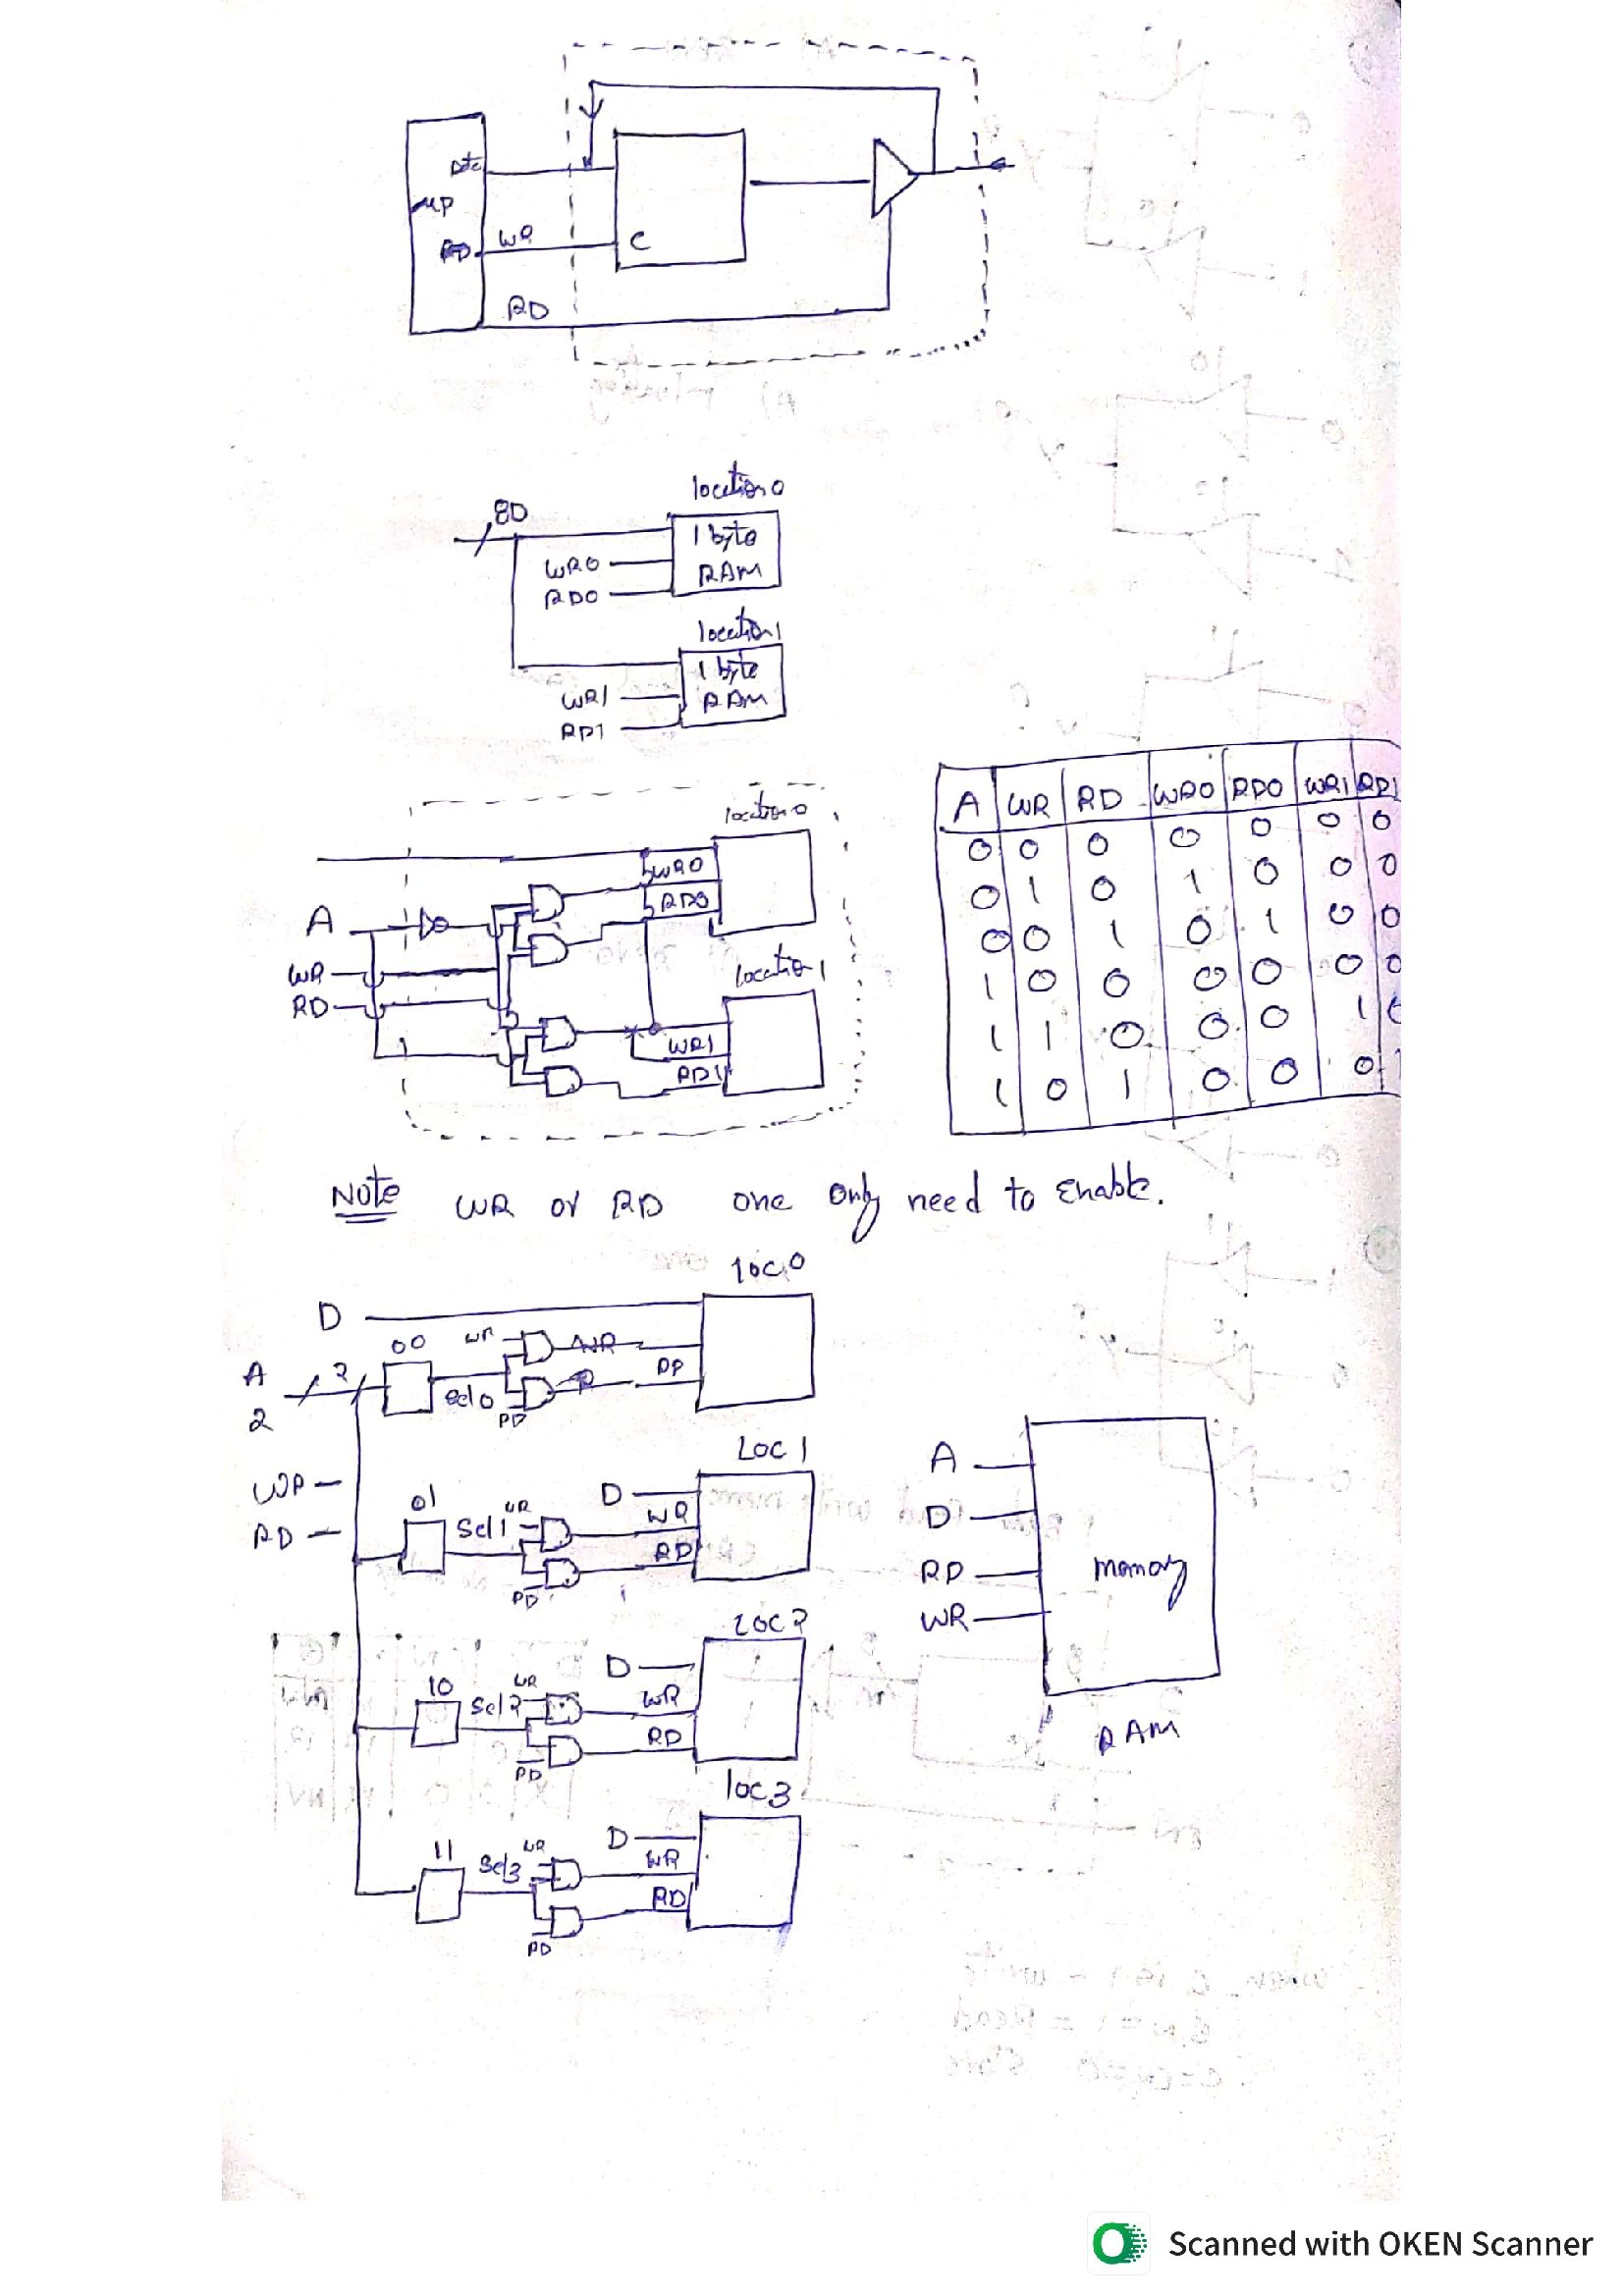 Data
μP
WR
C
RD
8D
location 0
1 byte
RAM
WR0
RD0
location 1
1 byte
RAM
WR1
RD1
location 0
WR0
RD0
A
WR
RD
location 1
WR1
RD1
A WR RD WR0 RD0 WR1 RD1
0 0 0 0 0 0 0
0 1 0 1 0 0 0
0 0 1 0 1 0 0
1 0 0 0 0 0 0
1 1 0 0 0 1
1 0 1 0 0 0
Note WR or RD one only need to Enable.
loc 0
D
00
WR
WR
A
2
2
Sel0
RD
RD
WR
RD
LOC 1
01
Sel1
WR
D
WR
RD
RD
LOC2
10
Sel2
WR
D
WR
RD
RD
loc3
11
Sel3
WR
D
WR
RD
RD
A
D
RD
WR
memory
RAM
Scanned with OKEN Scanner